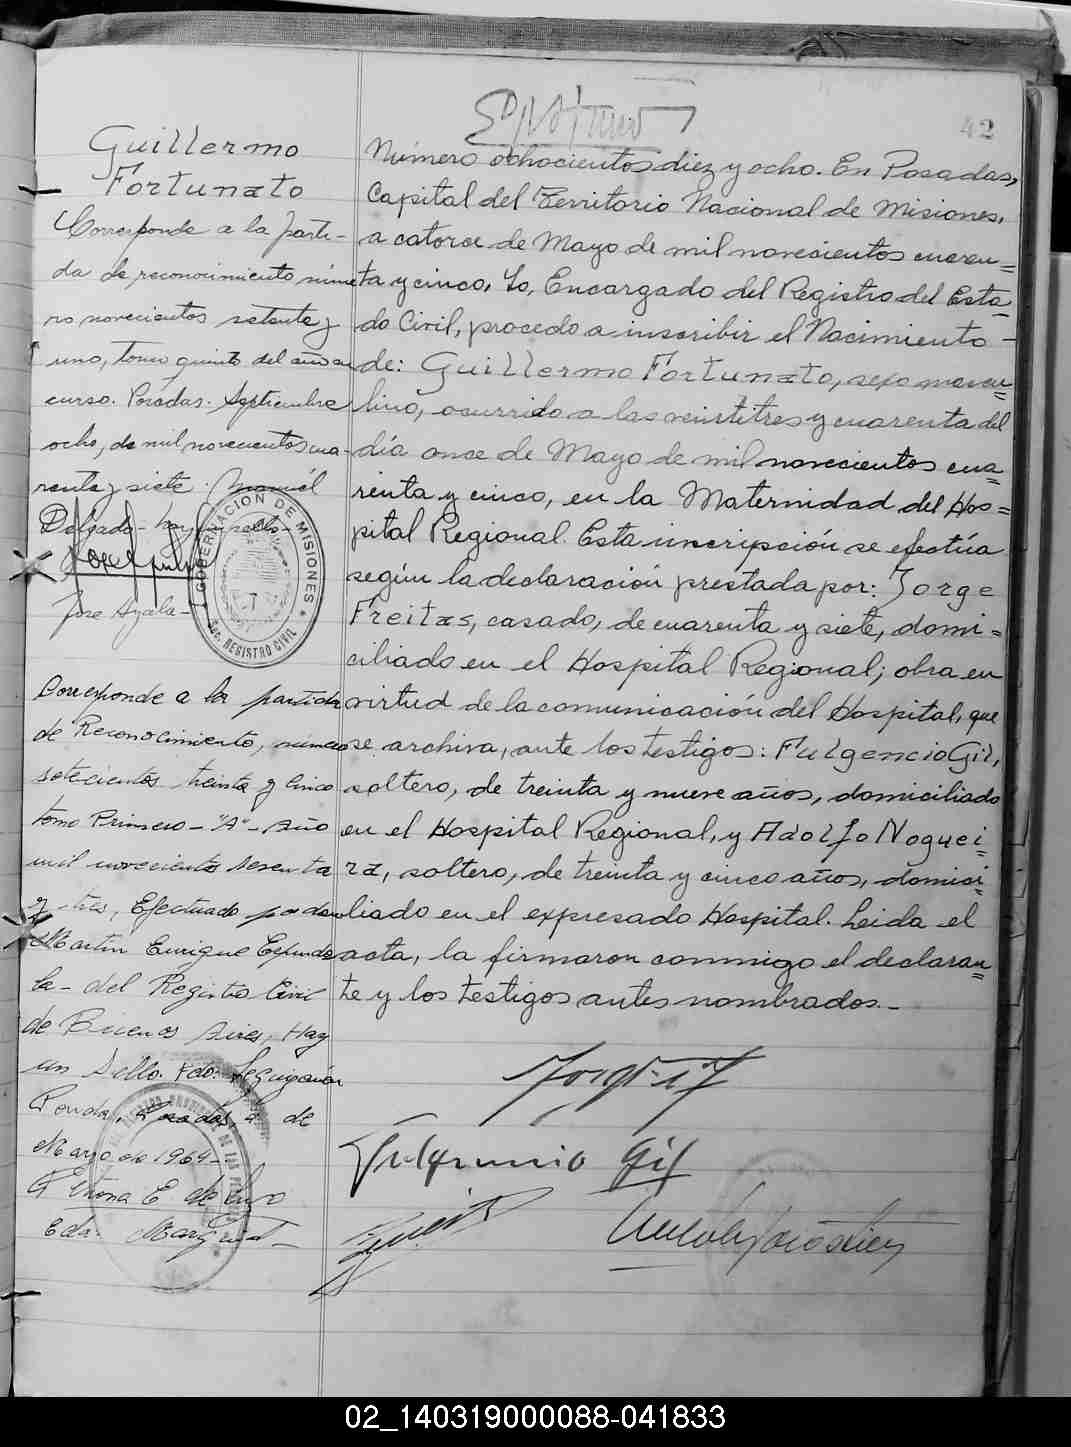 42
Guillermo
Fortunato
Corresponde a la parti-
da de reconocimiento núme
ro novecientos setenta y
uno, tomo quinto del año en
curso. Posadas. Septiembre
ocho, de mil novecientos cua-
renta y siete. Manuel
Delgado - hay un sello -
Jose Ayala -
GOBERNACION DE MISIONES
REGISTRO CIVIL
Corresponde a la partida
de Reconocimiento, número
setecientos treinta y cinco
tomo Primero - "A" - Año
mil novecientos sesenta
y tres, Efectuado por don
Martin Enrique
la - del Registro Civil
de Buenos Aires, Hay
un Sello. Fdo:
Posadas, de
Marzo de 1964 -
Número ochocientos diez y ocho. En Posadas,
Capital del Territorio Nacional de Misiones,
a catorce de Mayo de mil novecientos cuaren=
ta y cinco, Yo, Encargado del Registro del Esta
do Civil, procedo a inscribir el Nacimiento -
de: Guillermo Fortunato, sexo mascu
lino, ocurrido a las veintitres y cuarenta del
día once de Mayo de mil novecientos cua
renta y cinco, en la Maternidad del Hos=
pital Regional. Esta inscripción se efectúa
según la declaración prestada por: Jorge
Freitas, casado, de cuarenta y siete, domi=
ciliado en el Hospital Regional; obra en
virtud de la comunicación del Hospital, que
se archiva, ante los testigos: Fulgencio Gil,
soltero, de treinta y nueve años, domiciliado
en el Hospital Regional, y Adolfo Noguei=
ra, soltero, de treinta y cinco años, domici=
liado en el expresado Hospital. Leida el
acta, la firmaron conmigo el declaran=
te y los testigos antes nombrados.-
Fulgencio Gil
02_140319000088-041833